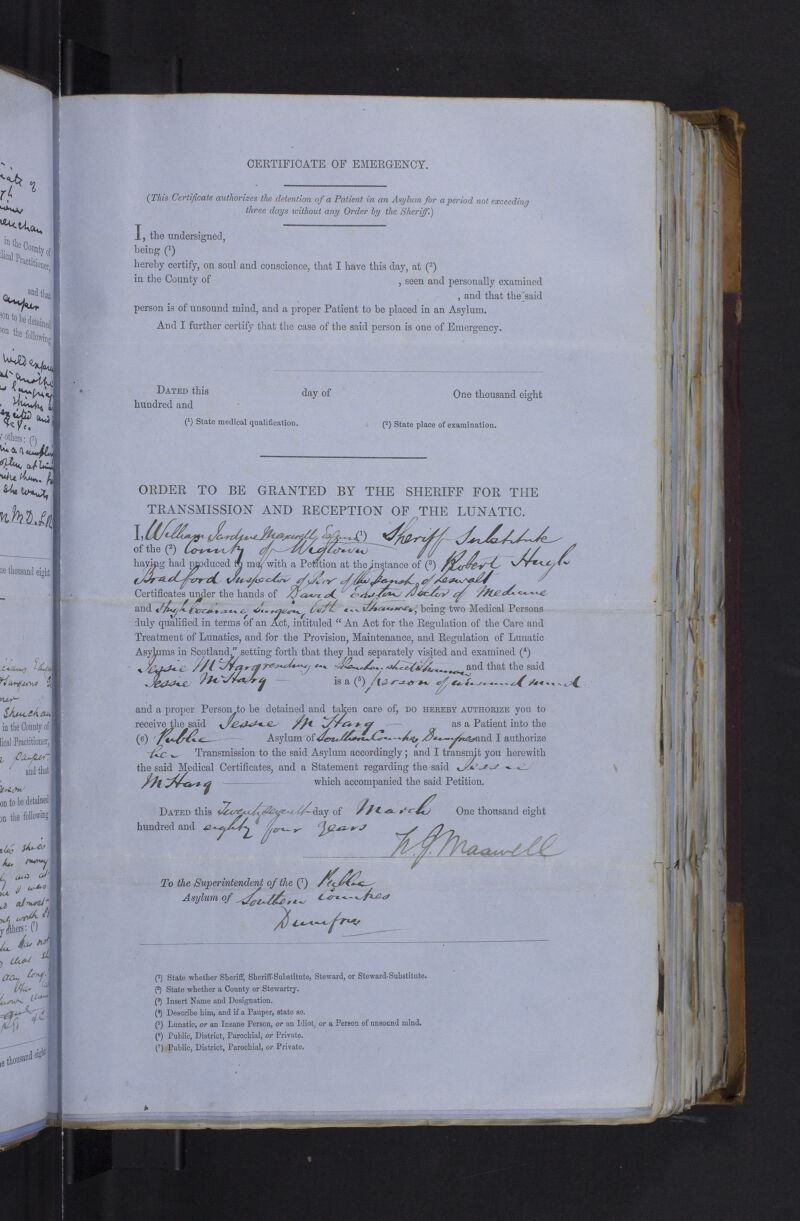 CERTIFICATE OF EMERGENCY.
(This Certificate authorizes the detention of a Patient in an Asylum for a period not exceeding
three days without any Order by the Sheriff.)
I, the undersigned,
being (¹)
hereby certify, on soul and conscience, that I have this day, at (²)
in the County of , seen and personally examined
, and that the said
person is of unsound mind, and a proper Patient to be placed in an Asylum.
And I further certify that the case of the said person is one of Emergency.
DATED this day of One thousand eight
hundred and
(¹) State medical qualification. (²) State place of examination.
ORDER TO BE GRANTED BY THE SHERIFF FOR THE
TRANSMISSION AND RECEPTION OF THE LUNATIC.
I, William Jardine Maxwell, Esquire (¹) Sheriff Substitute
of the (²) County of Wigtown
having had produced to me, with a Petition at the instance of (³) Robert Hugh
Bradford Inspector of Poor of the Parish of Leswalt
Certificates under the hands of David Easton Doctor of Medicine
and Hugh Cochrane Surgeon, both in Stranraer, being two Medical Persons
duly qualified in terms of an Act, intituled "An Act for the Regulation of the Care and
Treatment of Lunatics, and for the Provision, Maintenance, and Regulation of Lunatic
Asylums in Scotland," setting forth that they had separately visited and examined (⁴)
Jessie McHarg residing in street Stranraer and that the said
Jessie McHarg is a (⁵) person of unsound mind
and a proper Person to be detained and taken care of, DO HEREBY AUTHORIZE you to
receive the said Jessie McHarg as a Patient into the
(⁶) Public Asylum of Southern Counties Dumfries and I authorize
her Transmission to the said Asylum accordingly; and I transmit you herewith
the said Medical Certificates, and a Statement regarding the said Jessie
McHarg which accompanied the said Petition.
DATED this Twenty seventh day of March One thousand eight
hundred and eighty four years
W J Maxwell
To the Superintendent of the (⁷) Public
Asylum of Southern Counties
Dumfries
(¹) State whether Sheriff, Sheriff-Substitute, Steward, or Steward-Substitute.
(²) State whether a County or Stewartry.
(³) Insert Name and Designation.
(⁴) Describe him, and if a Pauper, state so.
(⁵) Lunatic, or an Insane Person, or an Idiot, or a Person of unsound mind.
(⁶) Public, District, Parochial, or Private.
(⁷) Public, District, Parochial, or Private.